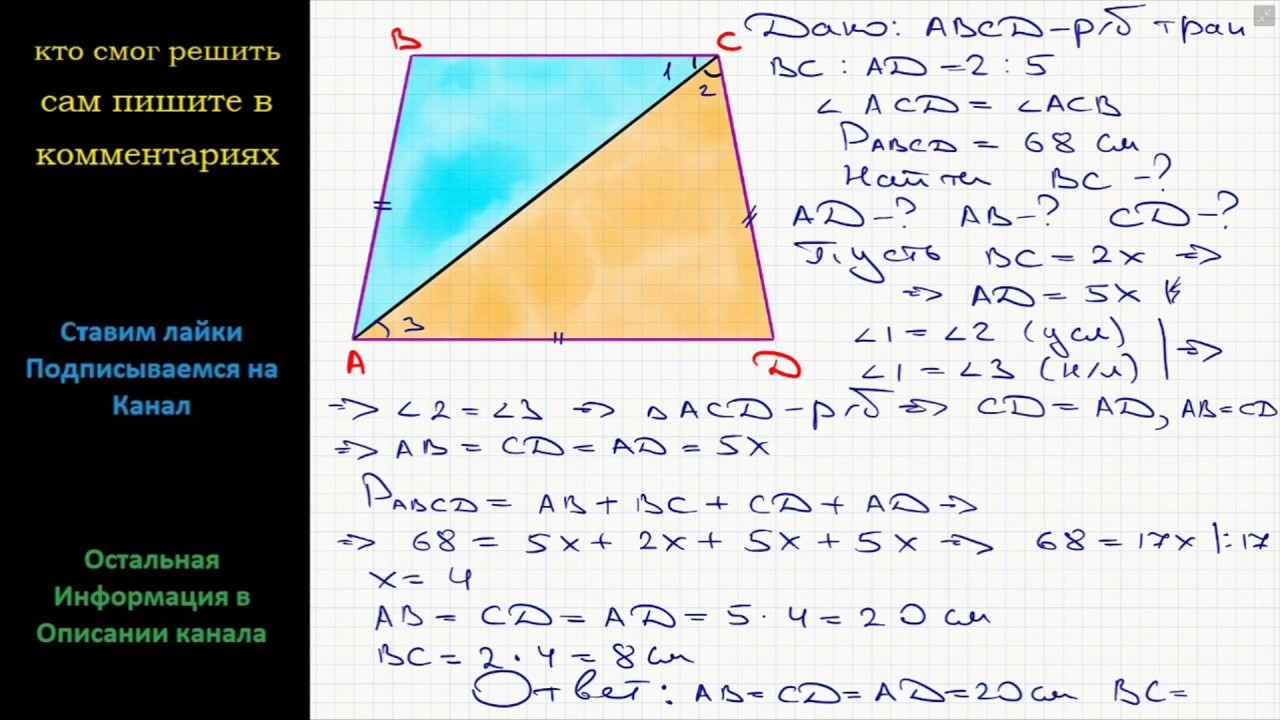 кто смог решить
сам пишите в
комментариях
Ставим лайки
Подписываемся на
Канал
Остальная
Информация в
Описании канала
B
C
1
2
3
A
D
Дано: ABCD – р/б трап
BC : AD = 2 : 5
∠ ACD = ∠ACB
PABCD = 68 см
Найти BC -?
AD -? AB -? CD -?
Пусть BC = 2x =>
=> AD = 5x
∠1 = ∠2 (усл)
∠1 = ∠3 (н/л) | =>
=> ∠2 = ∠3 => △ACD – р/б => CD = AD, AB = CD
=> AB = CD = AD = 5x
PABCD = AB + BC + CD + AD =>
=> 68 = 5x + 2x + 5x + 5x => 68 = 17x |:17
x = 4
AB = CD = AD = 5 · 4 = 20 см
BC = 2 · 4 = 8 см
Ответ: AB = CD = AD = 20 см BC =